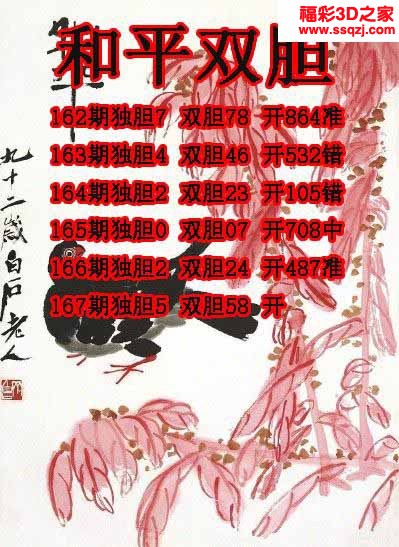 福彩3D之家
www.ssqzj.com
和平双胆
162期独胆7 双胆78 开864准
163期独胆4 双胆46 开532错
164期独胆2 双胆23 开105错
165期独胆0 双胆07 开708中
166期独胆2 双胆24 开487准
167期独胆5 双胆58 开
和平
九十二歲白石老人